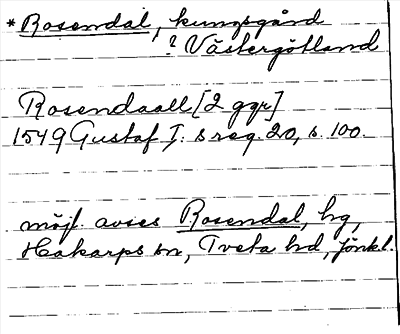 * Rosendal, kungsgård
? Västergötland
Rosendaall [2 ggr]
1549 Gustaf I: s reg. 20, s. 100.
möjl. avses Rosendal, hg,
Hakarps sn, Tveta hd, Jönkl.